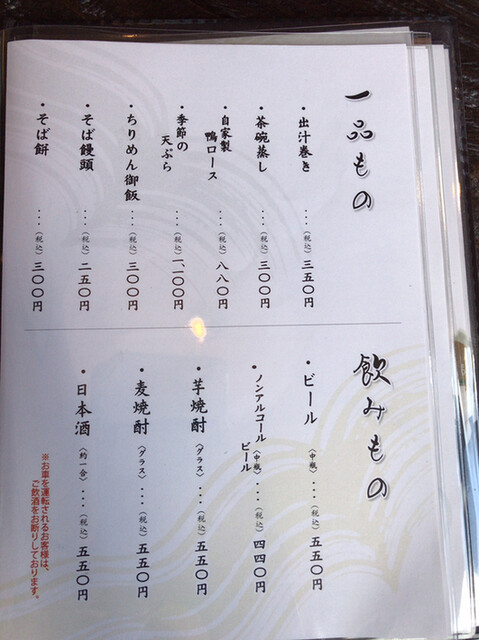 一品もの
・出汁巻き ・・・(税込)三五〇円
・茶碗蒸し ・・・(税込)三〇〇円
・自家製
鴨ロース ・・・(税込)八八〇円
・季節の
天ぷら ・・・(税込)一、一〇〇円
・ちりめん御飯 ・・・(税込)三〇〇円
・そば饅頭 ・・・(税込)二五〇円
・そば餅 ・・・(税込)三〇〇円
飲みもの
・ビール 〈中瓶〉・・・(税込)五五〇円
・ノンアルコール
ビール 〈中瓶〉・・・(税込)四四〇円
・芋焼酎 〈グラス〉・・・(税込)五五〇円
・麦焼酎 〈グラス〉・・・(税込)五五〇円
・日本酒 〈約一合〉・・・(税込)五五〇円
※お車を運転されるお客様は、
ご飲酒をお断りしております。